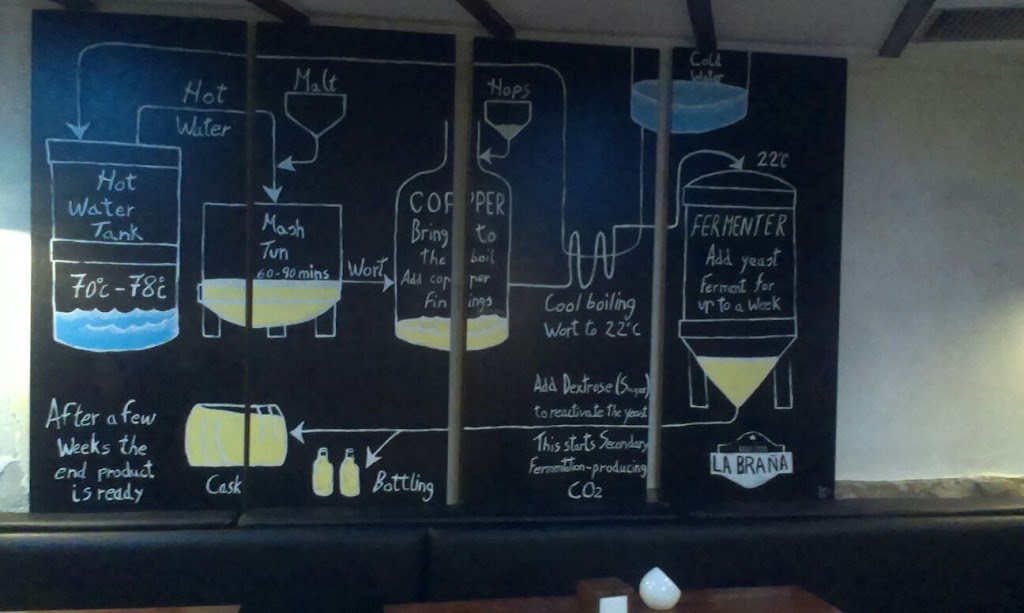 Hot
Water
Malt
Hops
Cold
Water
22°C
Hot
Water
Tank
70°C-78°C
Mash
Tun
60-90 mins
Wort
COPPER
Bring to
the boil
Add copper
Finings
Cool boiling
Wort to 22°C
FERMENTER
Add yeast
Ferment for
up to a week
Add Dextrose (Sugar)
to reactivate the yeast
This starts Secondary
Fermentation-producing
CO2
After a few
Weeks the
end product
is ready
Cask
Bottling
LA BRAÑA